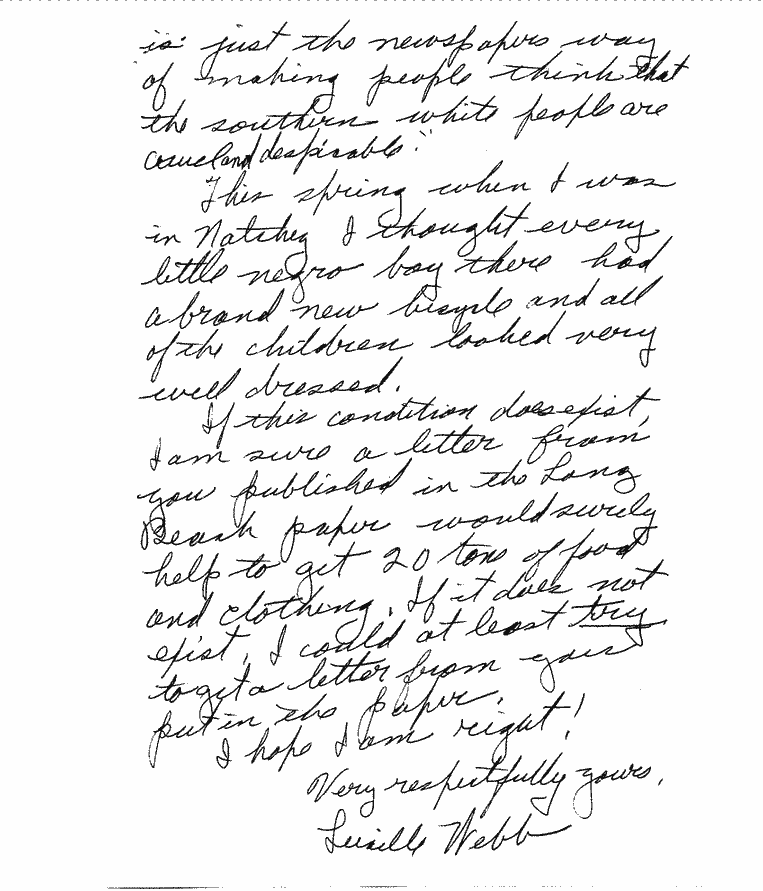 is just the newspapers way
of making people think that
the southern white people are
cruel and despicable."
This spring when I was
in Natchez I thought every
little negro boy there had
a brand new bicycle and all
of the children looked very
well dressed.
If this condition does exist,
I am sure a letter from
you published in the Long
Beach paper would surely
help to get 20 tons of food
and clothing. If it does not
exist, I could at least try
to get a letter from you
put in the paper.
I hope I am right!
Very respectfully yours,
Lucille Webb